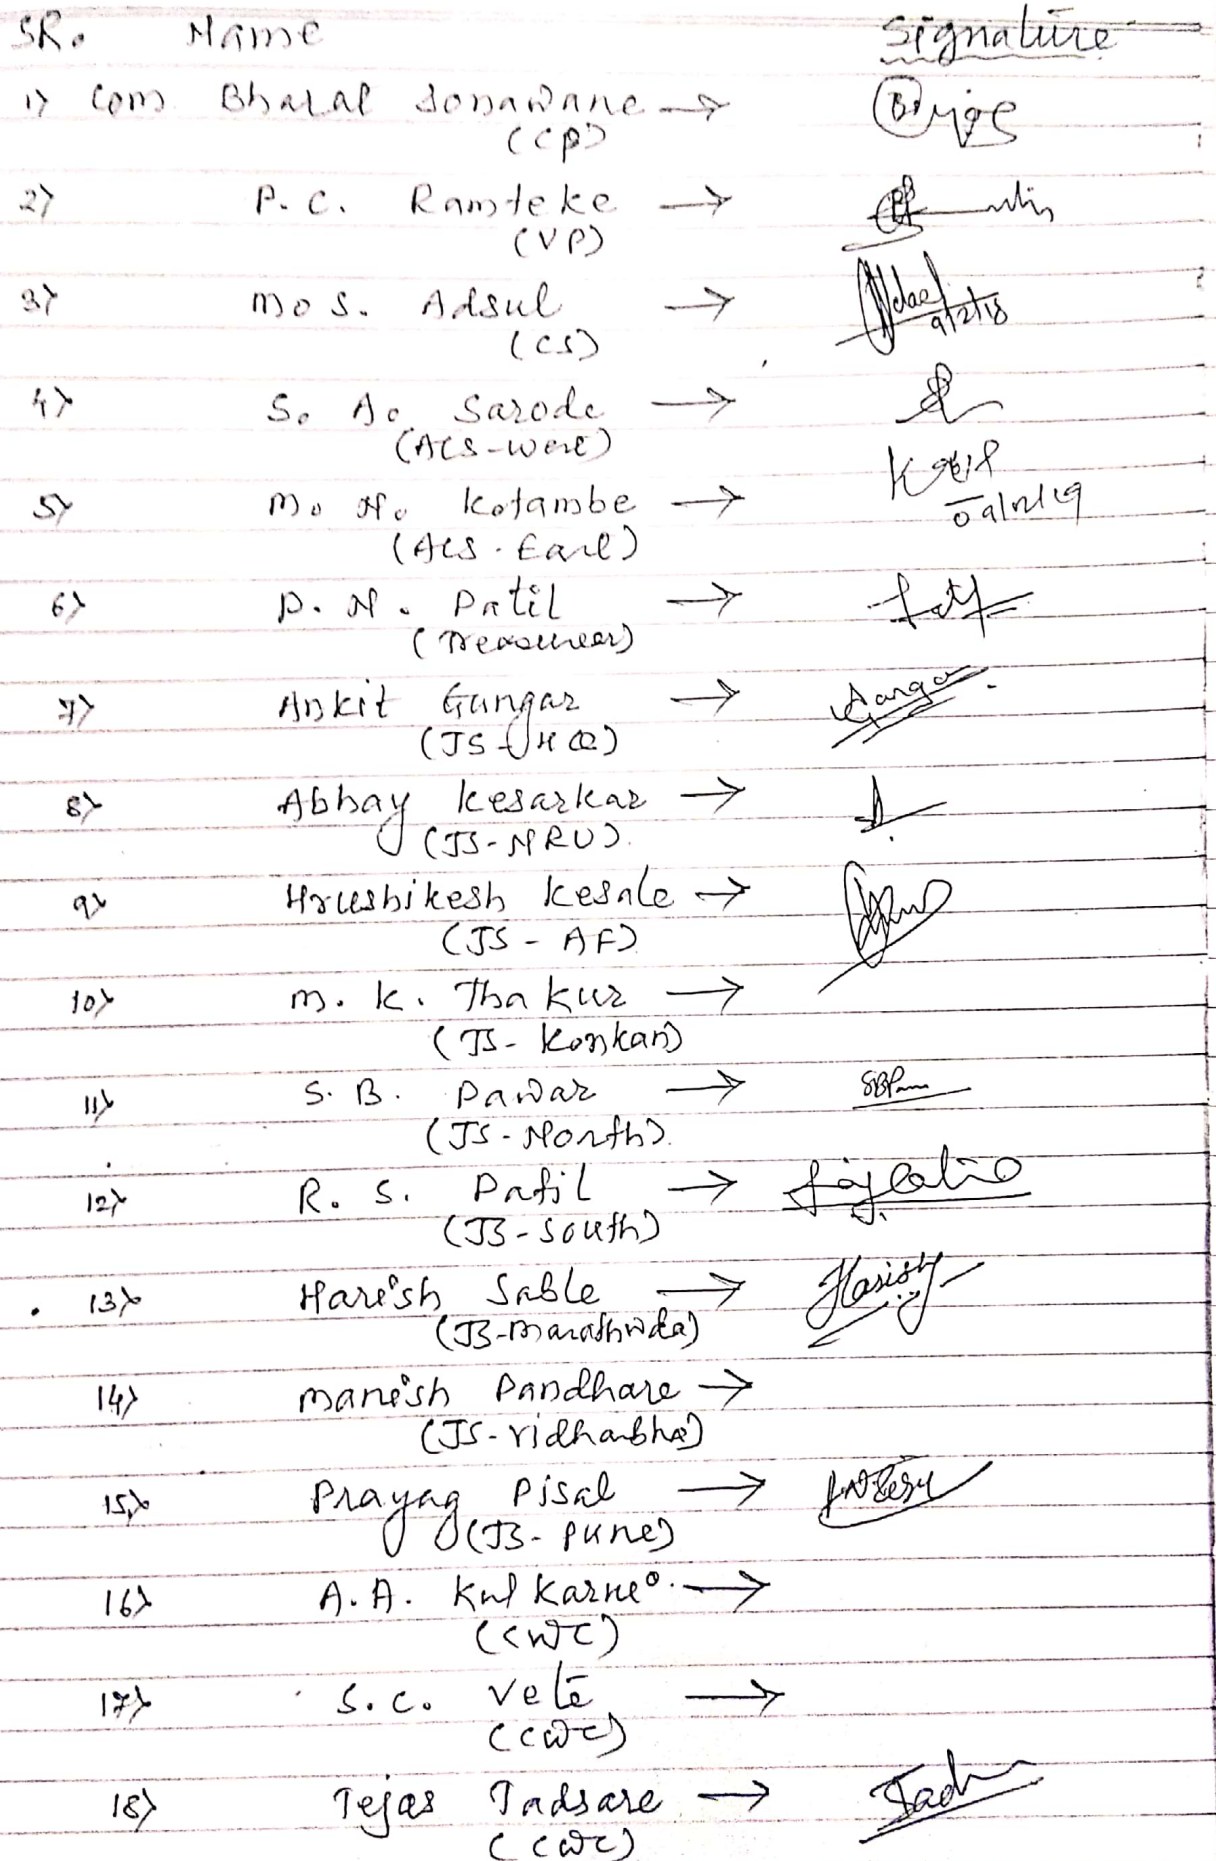 SR. Name Signature
1) Com. Bharat Sonawane →
(CP)
2) P. C. Ramteke →
(VP)
3) M. S. Adsul →
9/2/18
(CS)
4) S. A. Sarode →
(ACS-West)
5) M. N. Kotambe →
(ACS-East)
6) P. N. Patil →
(Treasurer)
7) Ankit Gangar →
(JS-HQ)
8) Abhay Kesarkar →
(JS-NRU)
9) Hrushikesh Kesale →
(JS-AF)
10) M. K. Thakur →
(JS-Konkan)
11) S. B. Pawar →
(JS-North)
12) R. S. Patil →
(JS-South)
13) Harish Sable → Harish
(JS-Marathwda)
14) Manish Pandhare →
(JS-Vidharbha)
15) Prayag Pisal →
(JS-Pune)
16) A. A. Kulkarni →
(CWC)
17) S. C. Vete →
(CWC)
18) Tejas Tadsare →
(CWC)